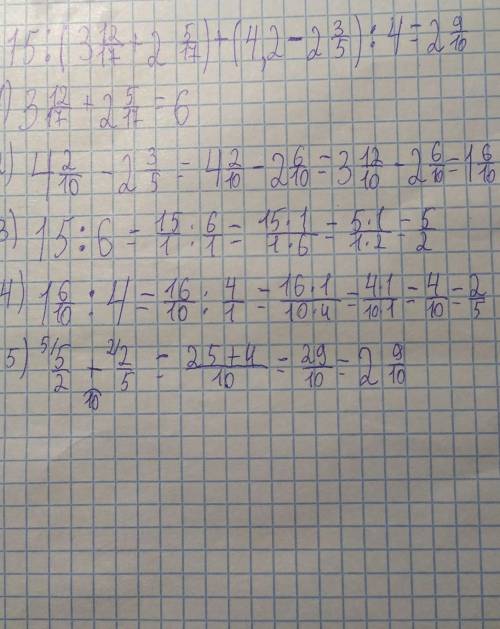 15:(3 12/17+2 5/17)+(4,2-2 3/5):4=2 9/10
1) 3 12/17+2 5/17=6
2) 4 2/10-2 3/5=4 2/10-2 6/10=3 12/10-2 6/10=1 6/10
3) 15:6=15/1:6/1=15·1/1·6=5·1/1·2=5/2
4) 1 6/10:4=16/10:4/1=16·1/10·4=4·1/10·1=4/10=2/5
5) 5/ 5/2+ 2/ 2/5=25+4/10=29/10=2 9/10
10